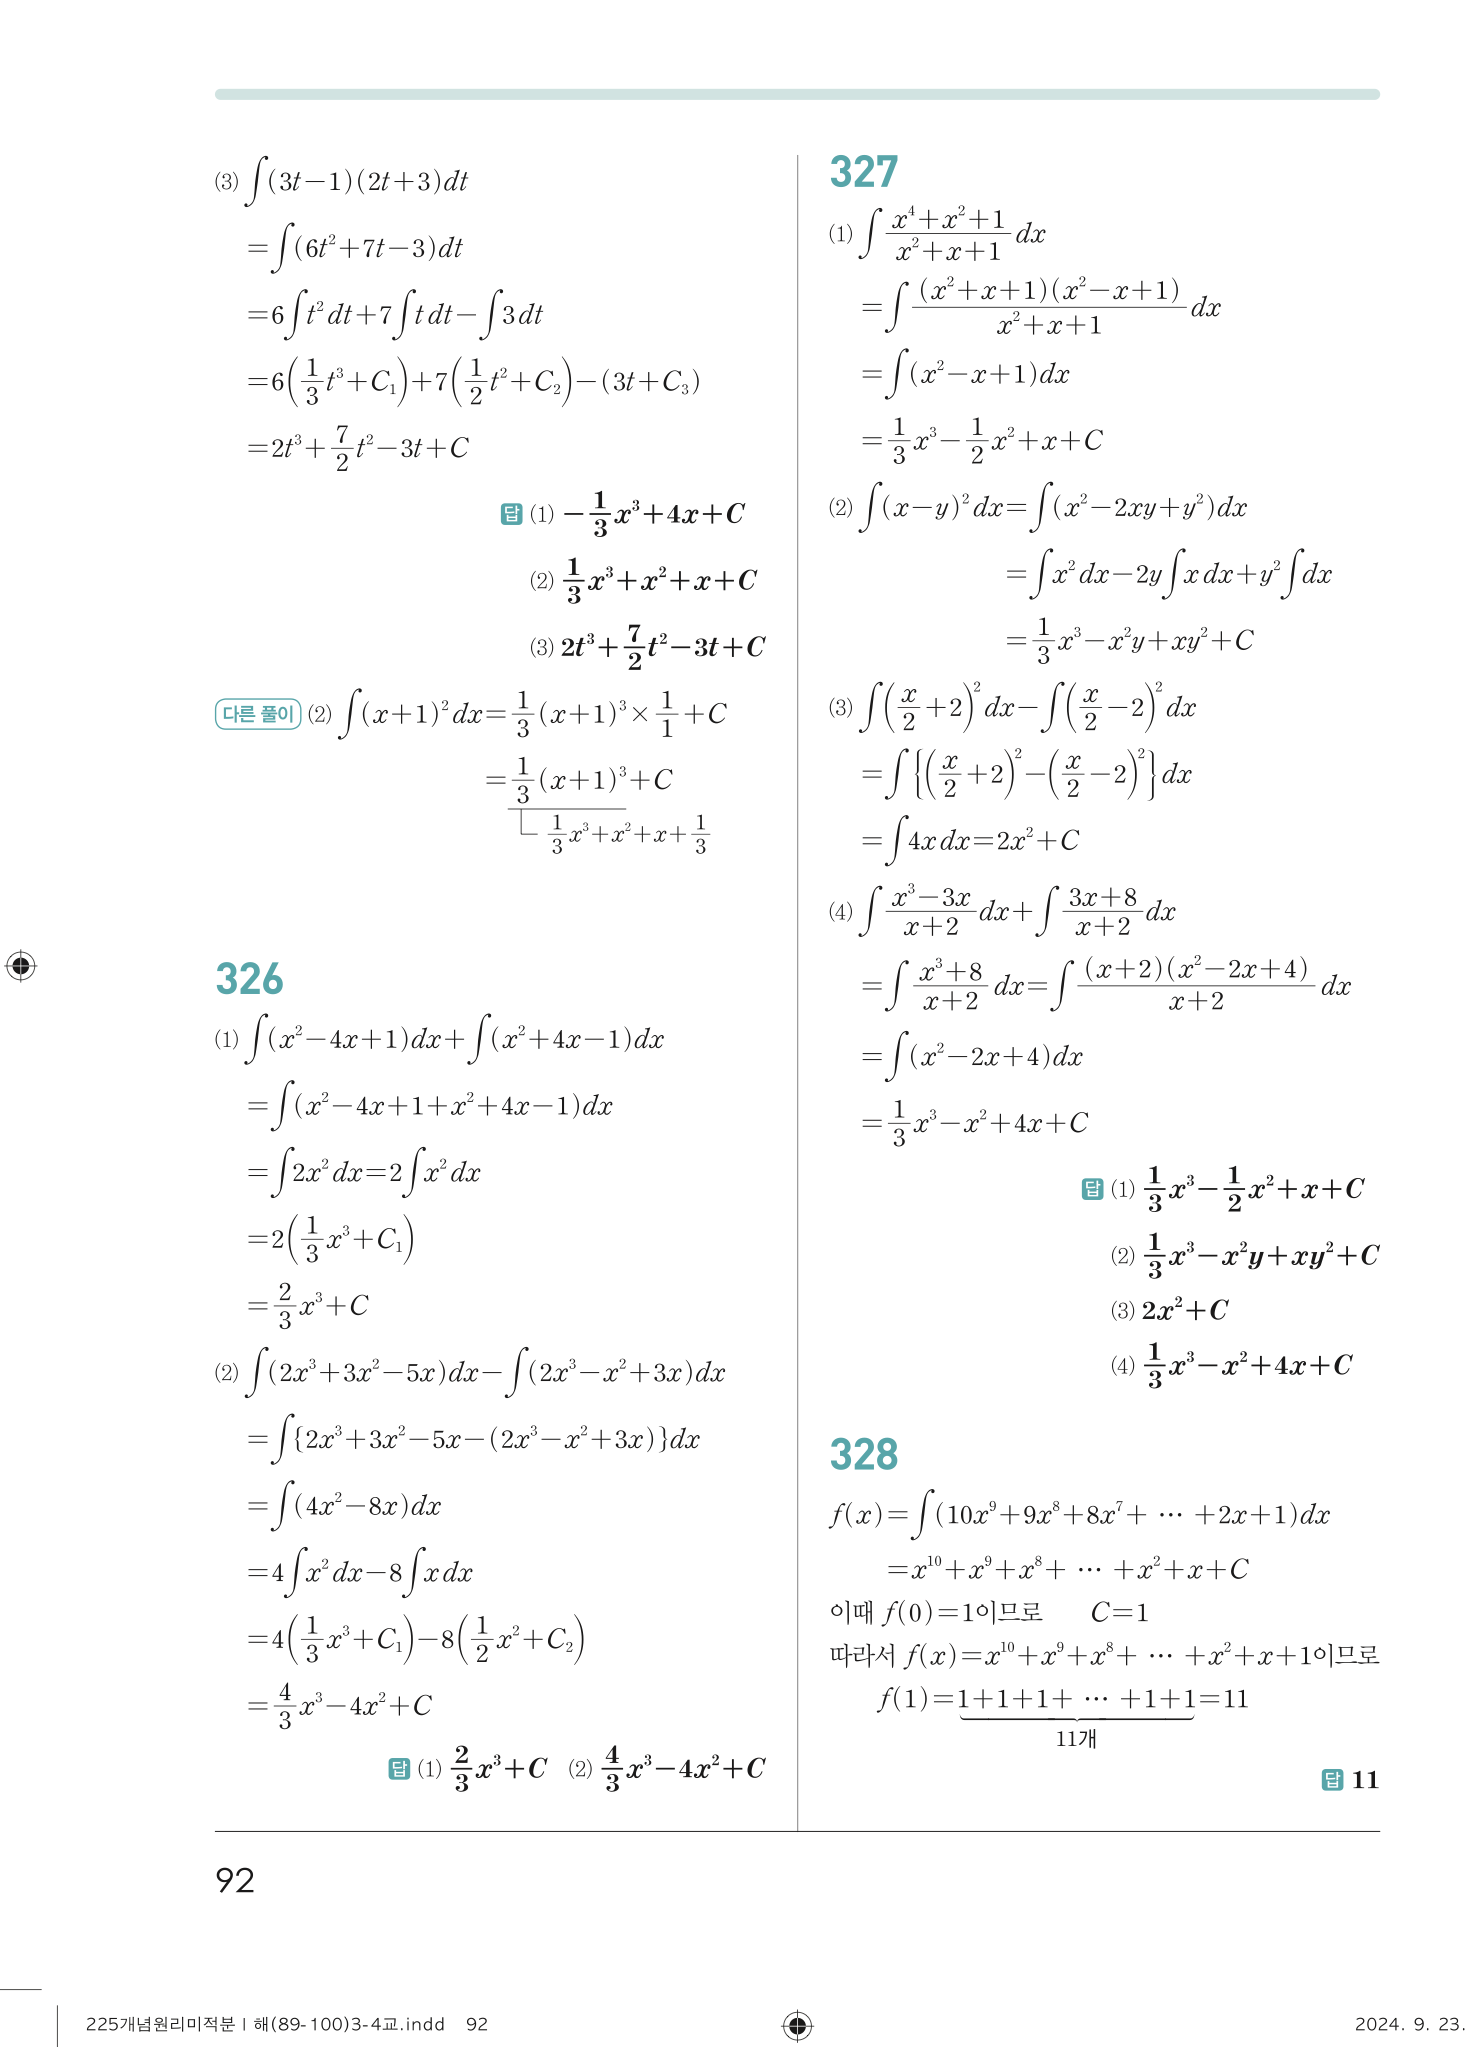 (3) ∫(3t−1)(2t+3)dt
=∫(6t²+7t−3)dt
=6∫t² dt+7∫t dt−∫3 dt
=6(1/3 t³+C₁)+7(1/2 t²+C₂)−(3t+C₃)
=2t³+7/2 t²−3t+C
답 (1) −1/3 x³+4x+C
(2) 1/3 x³+x²+x+C
(3) 2t³+7/2 t²−3t+C
다른 풀이 (2) ∫(x+1)² dx=1/3 (x+1)³×1/1+C
=1/3 (x+1)³+C
1/3 x³+x²+x+1/3
326
(1) ∫(x²−4x+1)dx+∫(x²+4x−1)dx
=∫(x²−4x+1+x²+4x−1)dx
=∫2x² dx=2∫x² dx
=2(1/3 x³+C₁)
=2/3 x³+C
(2) ∫(2x³+3x²−5x)dx−∫(2x³−x²+3x)dx
=∫{2x³+3x²−5x−(2x³−x²+3x)}dx
=∫(4x²−8x)dx
=4∫x² dx−8∫x dx
=4(1/3 x³+C₁)−8(1/2 x²+C₂)
=4/3 x³−4x²+C
답 (1) 2/3 x³+C (2) 4/3 x³−4x²+C
327
(1) ∫ (x⁴+x²+1)/(x²+x+1) dx
=∫ (x²+x+1)(x²−x+1)/(x²+x+1) dx
=∫(x²−x+1)dx
=1/3 x³−1/2 x²+x+C
(2) ∫(x−y)² dx=∫(x²−2xy+y²)dx
=∫x² dx−2y∫x dx+y²∫dx
=1/3 x³−x²y+xy²+C
(3) ∫(x/2+2)² dx−∫(x/2−2)² dx
=∫{(x/2+2)²−(x/2−2)²}dx
=∫4x dx=2x²+C
(4) ∫ (x³−3x)/(x+2) dx+∫ (3x+8)/(x+2) dx
=∫ (x³+8)/(x+2) dx=∫ (x+2)(x²−2x+4)/(x+2) dx
=∫(x²−2x+4)dx
=1/3 x³−x²+4x+C
답 (1) 1/3 x³−1/2 x²+x+C
(2) 1/3 x³−x²y+xy²+C
(3) 2x²+C
(4) 1/3 x³−x²+4x+C
328
f(x)=∫(10x⁹+9x⁸+8x⁷+ ⋯ +2x+1)dx
=x¹⁰+x⁹+x⁸+ ⋯ +x²+x+C
이때 f(0)=1이므로 C=1
따라서 f(x)=x¹⁰+x⁹+x⁸+ ⋯ +x²+x+1이므로
f(1)=1+1+1+ ⋯ +1+1=11
11개
답 11
92
225개념원리미적분Ⅰ해(89-100)3-4교.indd 92
2024. 9. 23.